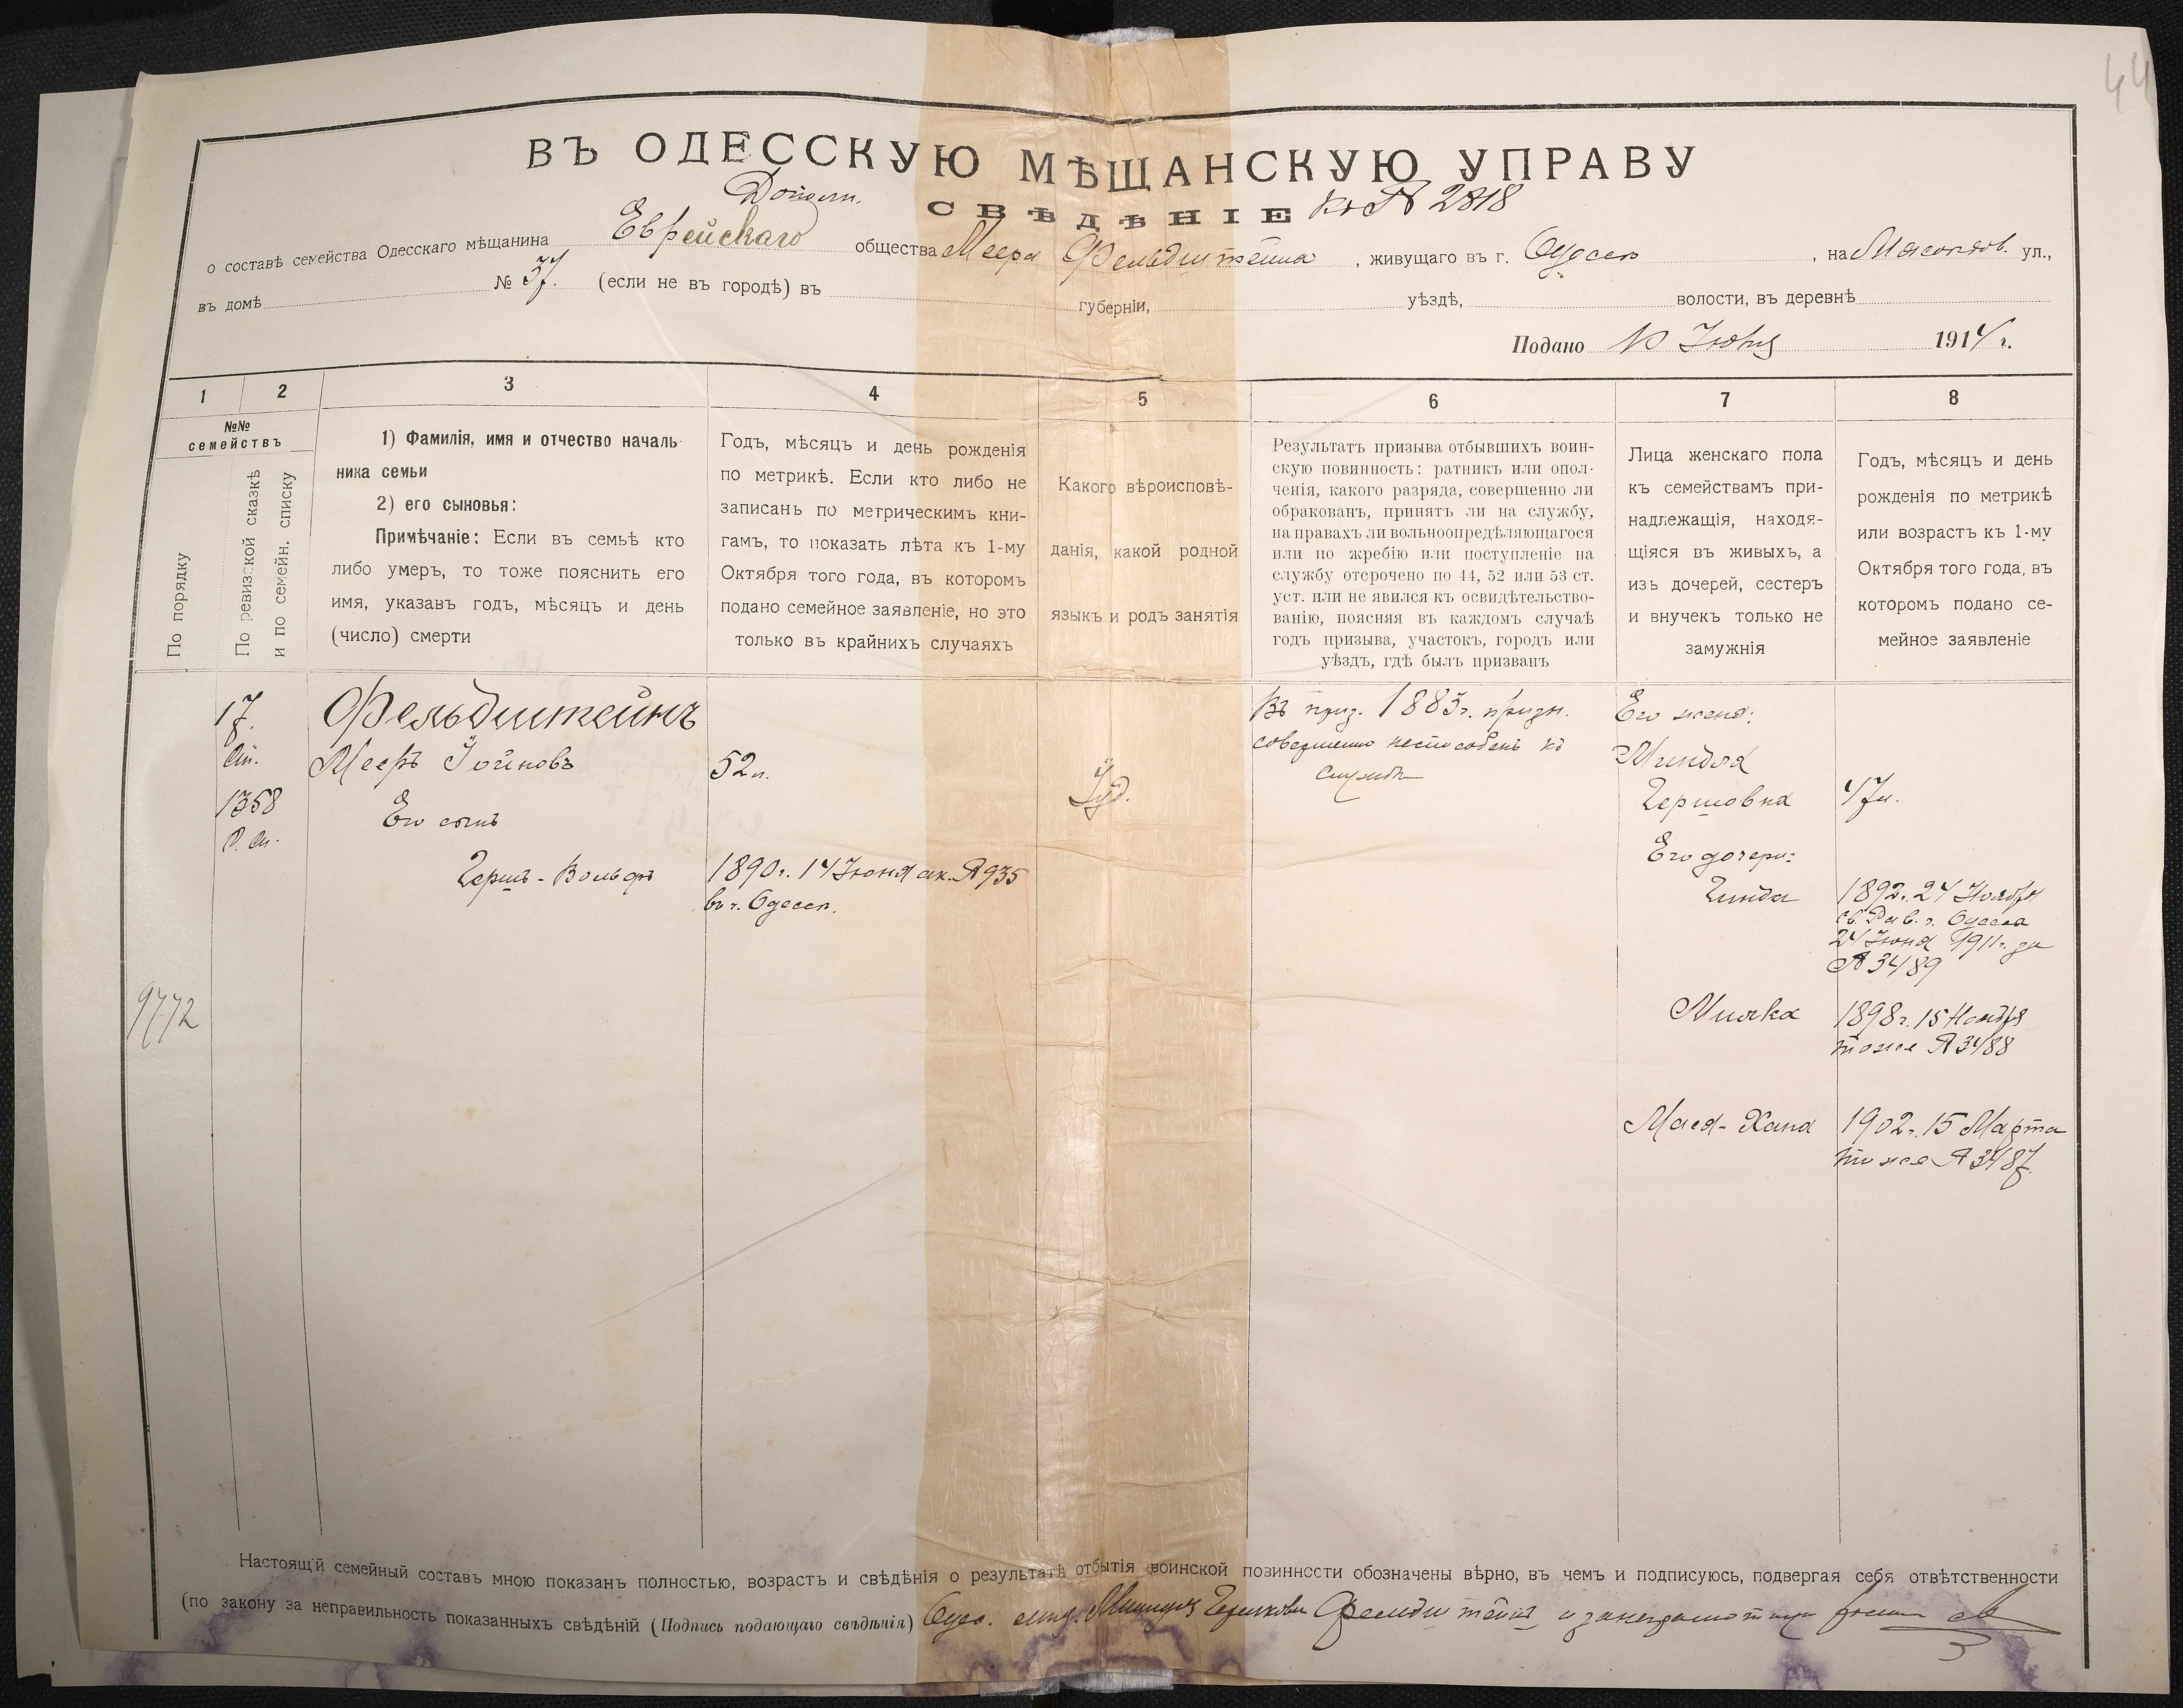 44
ВЪ ОДЕССКУЮ МѢЩАНСКУЮ УПРАВУ
Дополн.
СВѢДѢНІЕ къ № 2818
о составѣ семейства Одесскаго мѣщанина Еврейскаго общества Меера Фельдштейна, живущаго въ г. Одессѣ, на Мясоѣдов. ул.,
въ домѣ № 37. (если не въ городѣ) въ губерніи, уѣздѣ, волости, въ деревнѣ
Подано 10 Іюня 1914 г.
1 2 3 4 5 6 7 8
№№
семействъ
По порядку
По ревизской сказкѣ
и по семейн. списку
1) Фамилія, имя и отчество началь-
ника семьи
2) его сыновья:
Примѣчаніе: Если въ семьѣ кто
либо умеръ, то тоже пояснить его
имя, указавъ годъ, мѣсяцъ и день
(число) смерти
Годъ, мѣсяцъ и день рожденія
по метрикѣ. Если кто либо не
записанъ по метрическимъ кни-
гамъ, то показать лѣта къ 1-му
Октября того года, въ которомъ
подано семейное заявленіе, но это
только въ крайнихъ случаяхъ
Какого вѣроисповѣ-
данія, какой родной
языкъ и родъ занятія
Результатъ призыва отбывшихъ воин-
скую повинность: ратникъ или опол-
ченія, какого разряда, совершенно ли
обракованъ, принятъ ли на службу,
на правахъ ли вольноопредѣляющагося
или по жребію или поступленіе на
службу отсрочено по 44, 52 или 53 ст.
уст. или не явился къ освидѣтельство-
ванію, поясняя въ каждомъ случаѣ
годъ призыва, участокъ, городъ или
уѣздъ, гдѣ былъ призванъ
Лица женскаго пола
къ семействамъ при-
надлежащія, находя-
щіяся въ живыхъ, а
изъ дочерей, сестеръ
и внучекъ только не
замужнія
Годъ, мѣсяцъ и день
рожденія по метрикѣ
или возрастъ къ 1-му
Октября того года, въ
которомъ подано се-
мейное заявленіе
17.
1358
9772
Фельдштейнъ
Мееръ Іойновъ
Его сынъ
Гершъ-Вольфъ
52 л.
1890 г. 14 Іюня ак. № 935
въ г. Одессѣ.
Іуд.
Въ приз. 1883 г. призн.
совершенно неспособенъ къ
службѣ
Его жена:
Миндля
Гершовна
47 л.
Его дочери:
Гинда
1892 г. 24 Ноября
св. Рав. г. Одесса
24 Іюня 1911 г. за
№ 3489
Милка
1898 г. 15 Ноября
тоже № 3488
Мася-Хана
1902 г. 15 Марта
тоже № 3487.
Настоящій семейный составъ мною показанъ полностью, возрастъ и свѣдѣнія о результатѣ отбытія воинской повинности обозначены вѣрно, въ чемъ и подписуюсь, подвергая себя отвѣтственности
(по закону за неправильность показанныхъ свѣдѣній (Подпись подающаго свѣдѣнія) Одес. мѣщ. Фельдштейнъ